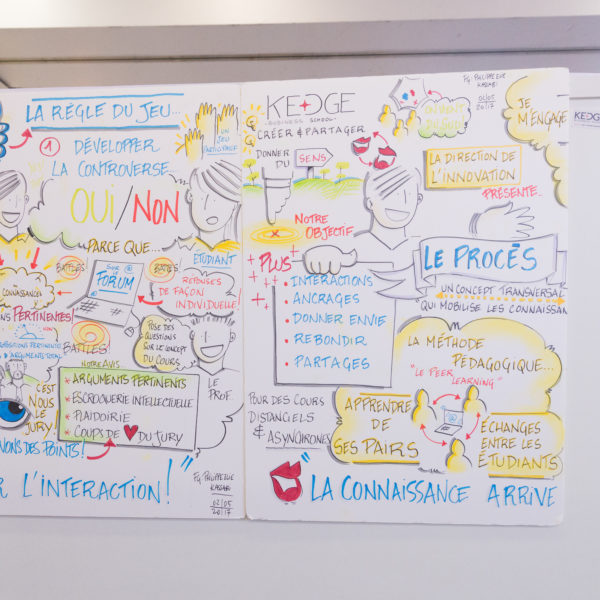 LA RÈGLE DU JEU...
1 DÉVELOPPER
LA CONTROVERSE
UN
JEU
PARTICIPATIF
OUI/NON
PARCE QUE...
ÉTUDIANT
BATTLES!
SUR @
FORUM
BATTLES!
RÉPONSES
DE FAÇON
INDIVIDUELLE!
CONNAISSANCES
PERTINENTES!
BATTLES!
POSE DES
QUESTIONS
SUR LE CONCEPT
DU COURS
LE PROF.
NOTRE AVIS
* ARGUMENTS PERTINENTS
* ESCROQUERIE INTELLECTUELLE
* PLAIDOIRIE
* COUPS DE ♥ DU JURY
C'EST
NOUS
LE
JURY!
NONS DES POINTS!
R L'INTERACTION!"
02/05
2017
KEDGE
BUSINESS SCHOOL
CRÉER & PARTAGER
DONNER
DU SENS
NOTRE
OBJECTIF
PLUS
• INTERACTIONS
• ANCRAGES
• DONNER ENVIE
• REBONDIR
• PARTAGES
POUR DES COURS
DISTANCIELS
& ASYNCHRONES
02/05
2017
JE
M'ENGAGE
LA DIRECTION DE
L'INNOVATION
PRÉSENTE...
LE PROCÈS
UN CONCEPT TRANSVERSAL
QUI MOBILISE LES CONNAISSAN
LA MÉTHODE
PÉDAGOGIQUE...
"LE PEER
LEARNING"
APPRENDRE
DE
SES PAIRS
ÉCHANGES
ENTRE LES
ÉTUDIANTS
"LA CONNAISSANCE ARRIVE
KEDGE